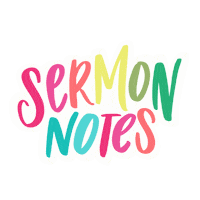 SeRMON
NOTES